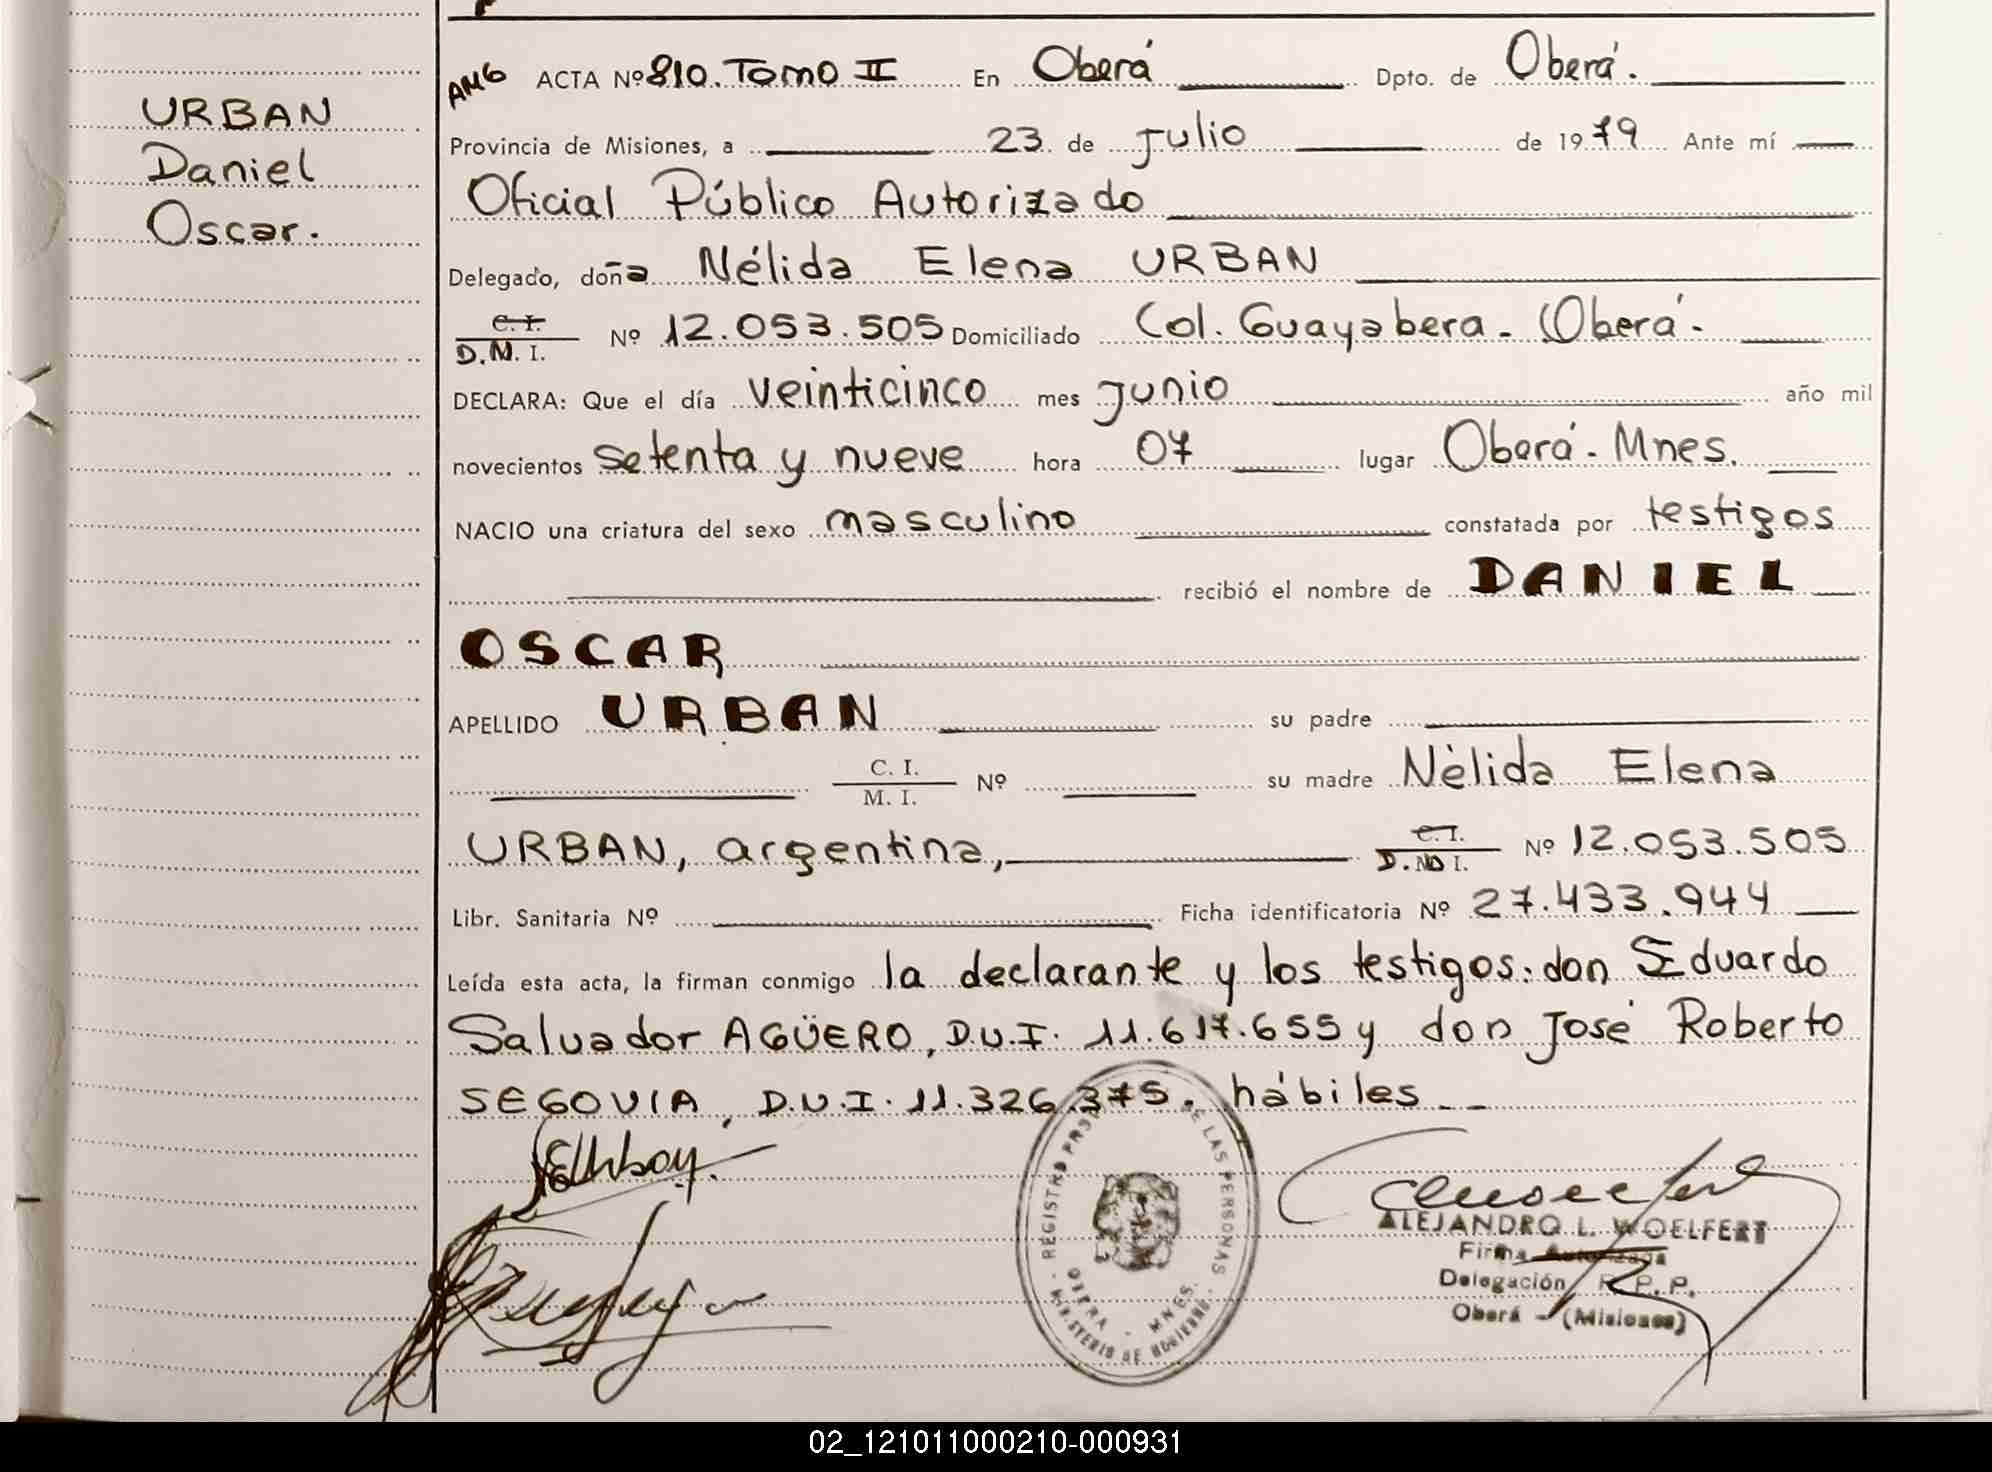 URBAN
Daniel
Oscar.
AMG ACTA Nº 810. Tomo II En Oberá Dpto. de Oberá.
Provincia de Misiones, a 23 de Julio de 1979 Ante mí
Oficial Público Autorizado
Delegado, doña Nélida Elena URBAN
C. I.
D.M. I. Nº 12.053.505 Domiciliado Col. Guayabera - Oberá -
DECLARA: Que el día veinticinco mes Junio año mil
novecientos setenta y nueve hora 07 lugar Oberá - Mnes.
NACIO una criatura del sexo masculino constatada por testigos
recibió el nombre de DANIEL
OSCAR
APELLIDO URBAN su padre
C. I.
M. I. Nº su madre Nélida Elena
URBAN, argentina, C. I.
D. N. I. Nº 12.053.505
Libr. Sanitaria Nº Ficha identificatoria Nº 27.433.944
Leída esta acta, la firman conmigo la declarante y los testigos: don Eduardo
Salvador AGÜERO, D.U.I. 11.617.655 y don José Roberto
SEGOVIA, D.U.I. 11.326.375. hábiles --
REGISTRO DE LAS PERSONAS
OBERA - MNES.
MINISTERIO DE GOBIERNO
ALEJANDRO L. WOELFERT
Firma Autorizada
Delegación R.P.P.
Oberá - (Misiones)
02_121011000210-000931